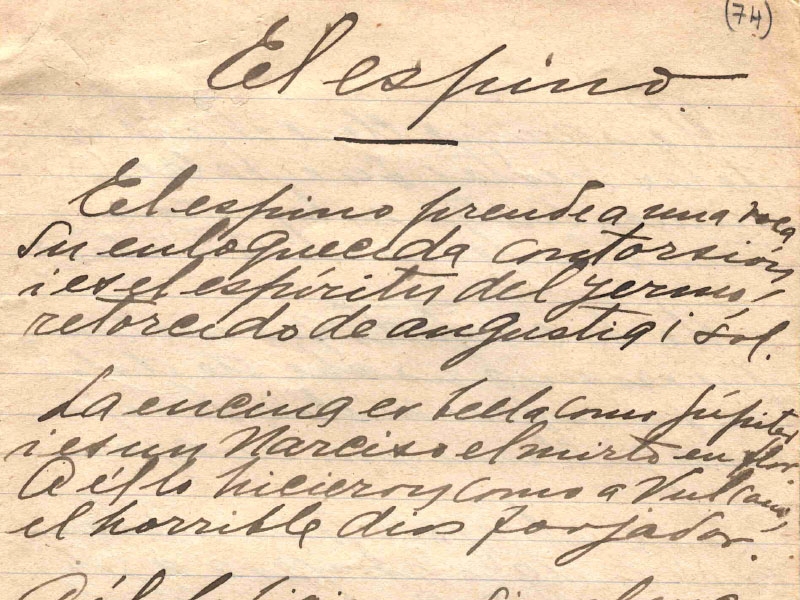 (74)
El espino
El espino prende a una roca
su enloquecida contorsión
i es el espíritu del yermo,
retorcido de angustia i sol.
La encina es bella como Júpiter
i es un Narciso el mirto en flor.
A él lo hicieron como a Vulcano,
el horrible dios forjador.
A él lo hicieron sin